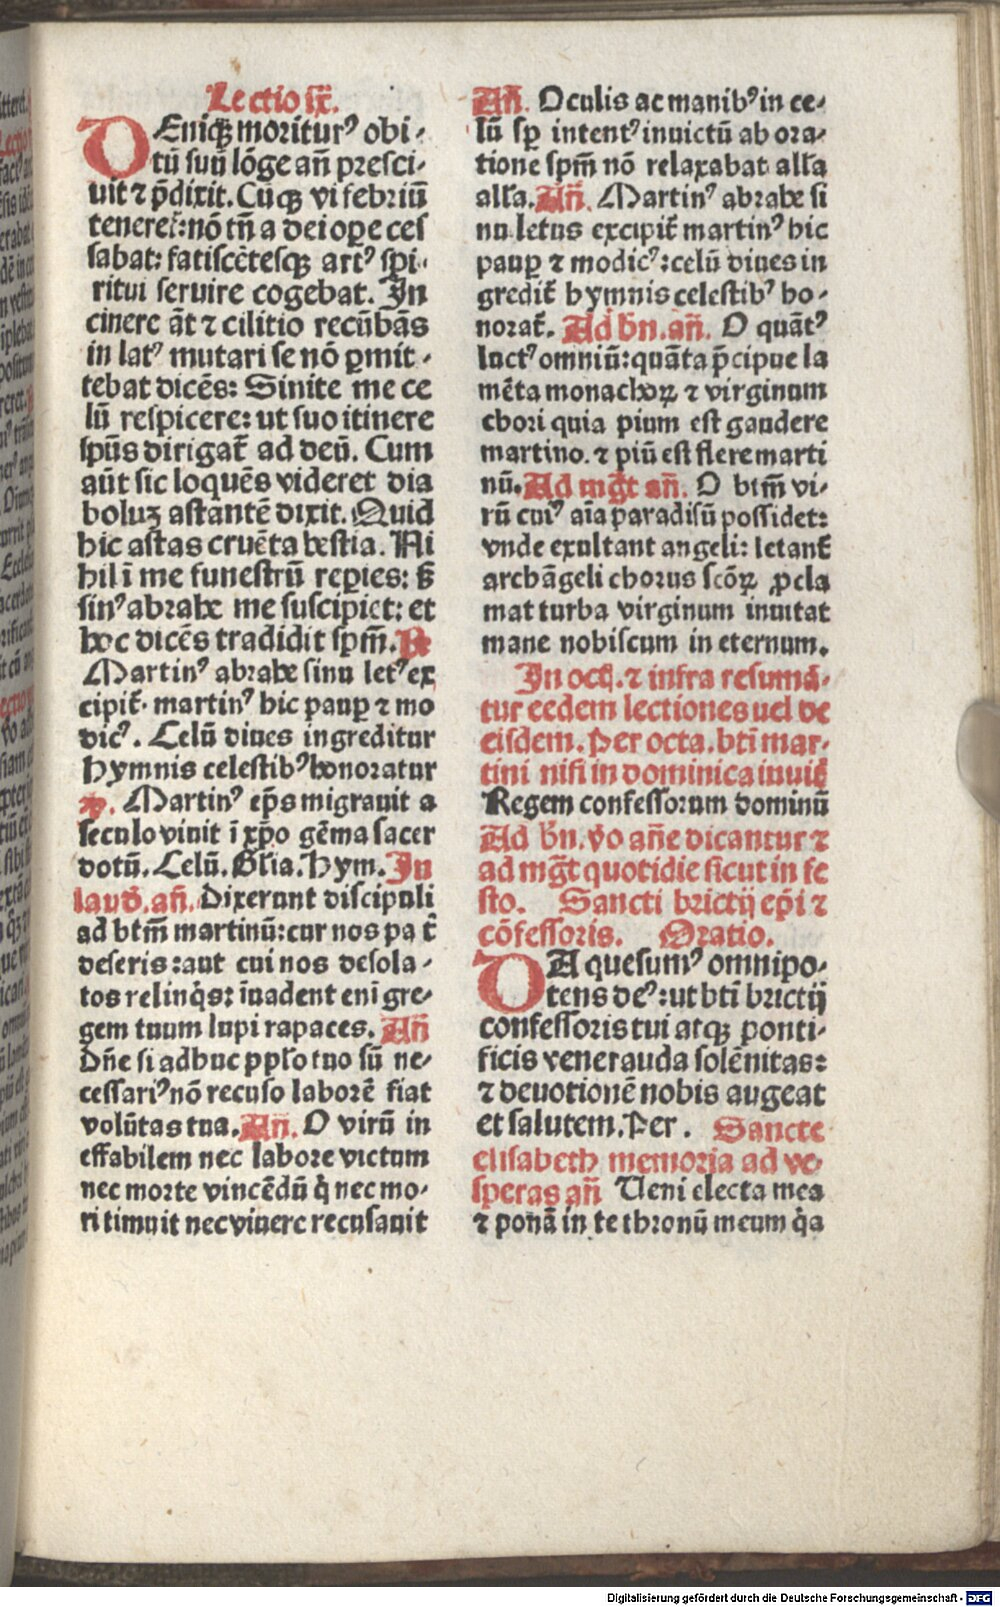 Lectio ix̄.
DEniqꝫ morituru᷒ obi-
tū suū lōge an̄ presci-
uit ⁊ p̄dixit. Cūqꝫ vi febriū
teneret᷑: nō tn̄ a dei oꝑe ces
sabat: fatiscētesqꝫ art᷒ spi-
ritui seruire cogebat. In
cinere āt ⁊ cilitio recūbās
in lat᷒ mutari se nō ꝑmit-
tebat dicēs: Sinite me ce
lū respicere: ut suo itinere
spūs dirigat᷑ ad deū. Cum
aūt sic loquēs videret dia
boluꝫ astantē dixit. Quid
hic astas cruēta bestia. Ni
hil ī me funestrū reꝑies: sꝫ
sin᷒ abrahe me suscipiet: et
hoc dicēs tradidit spm̄. ℟
Martin᷒ abrahe sinu let᷒ ex
cipit᷑. martin᷒ hic pauꝑ ⁊ mo
dic᷒. Celū diues ingreditur
hymnis celestib᷒ honoratur
℣. Martin᷒ ep̄s migrauit a
seculo viuit ī xp̄o gēma sacer
dotū. Celū. Gl̄ia. Hym. In
laud̄. an̄. Dixerunt discipuli
ad btm̄ martinū: cur nos pat᷑
deseris: aut cui nos desola-
tos relinq̇s: īuadent eni gre-
gem tuum lupi rapaces. An̄
Dn̄e si adhuc pplo tuo sū ne-
cessari᷒ nō recuso laborē fiat
volūtas tua. An̄. O virū in
effabilem nec labore victum
nec morte vincēdū q̇ nec mo-
ri timuit nec viuere recusauit
An̄. Oculis ac manib᷒ in ce-
lū sꝑ intent᷒ inuictū ab ora-
tione spm̄ nō relaxabat all̄a
all̄a. An̄. Martin᷒ abrahe si
nu letus excipit᷑ martin᷒ hic
pauꝑ ⁊ modic᷒: celū diues in
gredit᷑ hymnis celestib᷒ ho-
norat᷑. Ad bn̄. an̄. O quāt᷒
luct᷒ omniū: quāta p̄cipue la
mēta monachoꝝ ⁊ virginum
chori quia pium est gaudere
martino. ⁊ piū est flere marti
nū. Ad mḡt an̄. O btm̄ vi-
rū cui᷒ aīa paradisū possidet:
vnde exultant angeli: letant᷑
archāgeli chorus scōꝝ ꝓcla
mat turba virginum inuitat
mane nobiscum in eternum.
In oct̄. ⁊ infra resumā-
tur eedem lectiones uel de
eisdem. Per octa. bt̄i mar-
tini nisi in dominica inuit̄
Regem confessorum dominū
Ad bn̄. v̊o an̄e dicantur ⁊
ad mḡt quotidie sicut in fe
sto. Sancti brictij ep̄i ⁊
cōfessoris. Oratio.
DA quesum᷒ omnipo-
tens de᷒: ut bt̄i brictij
confessoris tui atqꝫ ponti-
ficis veneranda solēnitas:
⁊ deuotionē nobis augeat
et salutem. Per. Sancte
elisabeth memoria ad ve-
speras an̄ Ueni electa mea
⁊ ponā in te thronū meum q̇a
Digitalisierung gefördert durch die Deutsche Forschungsgemeinschaft - DFG